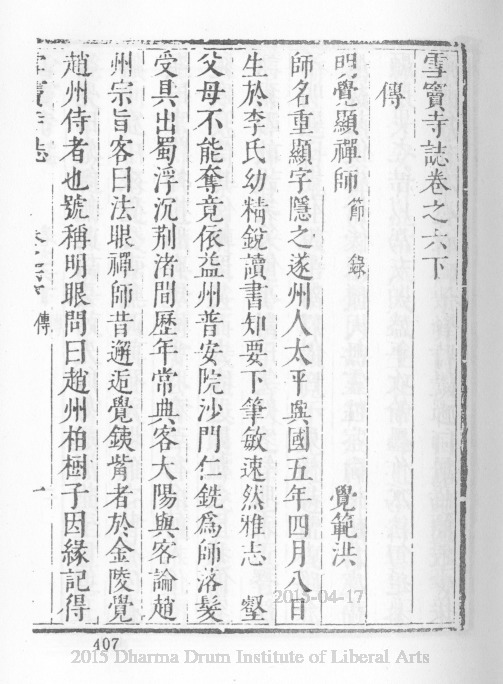 雪竇寺誌卷之六下
傳
明覺顯禪師節錄 覺範洪
師名重顯字隱之遂州人太平興國五年四月八日
生於李氏幼精銳讀書知要下筆敏速然雅志 壑
父母不能奪竟依益州普安院沙門仁銑爲師落髮
受具出蜀浮沉荆渚間歷年常典客大陽與客論趙
州宗旨客曰法眼禪師昔邂逅覺鐵觜者於金陵覺
趙州侍者也號稱明眼問曰趙州柏樹子因緣記得
雪竇寺誌 卷之六下 傳 一
2015-04-17
407
2015 Dharma Drum Institute of Liberal Arts